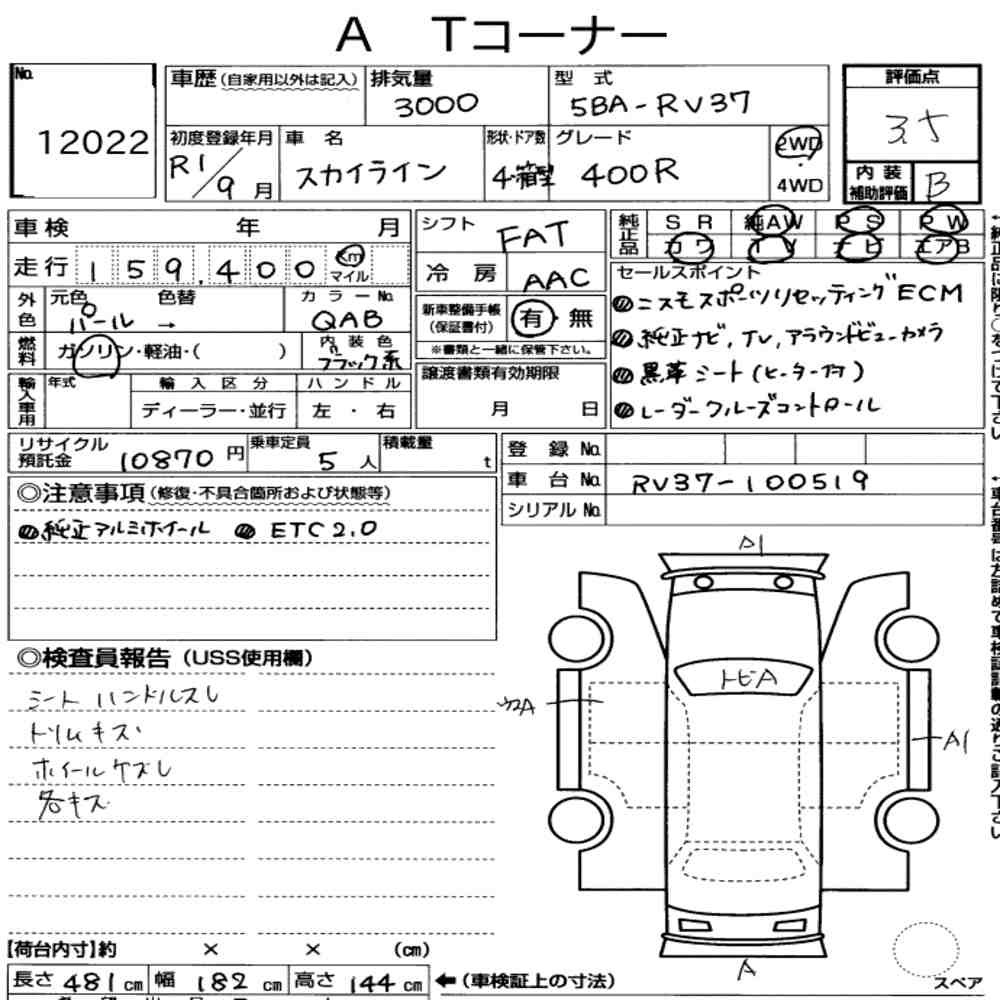 A Tコーナー
No. 12022
車歴 (自家用以外は記入)
排気量 3000
型 式 5BA-RV37
評価点 3.5
初度登録年月 R1/9月
車 名 スカイライン
形状・ドア数 4 箱型
グレード 400R
2WD・4WD
内装補助評価 B
車検 年 月
シフト FAT
純正品 SR 純AW PS PW
カワ TV ナビ エアB
走行 159,400 Km マイル
冷 房 AAC
セールスポイント
ニスモスポーツリセッティングECM
純正ナビ, TV, アラウンドビューカメラ
黒革シート(ヒーター付)
レーダークルーズコントロール
外色 元色 パール → 色替
カラーNo. QAB
新車整備手帳(保証書付) 有・無
※書類と一緒に保管下さい。
燃料 ガソリン・軽油・( )
内装色 ブラック系
輸入車用 年式
輸入区分 ディーラー・並行
ハンドル 左・右
譲渡書類有効期限
月 日
リサイクル預託金 10870円
乗車定員 5人
積載量 t
登 録 No.
車 台 No. RV37-100519
シリアル No.
◎注意事項(修復・不具合箇所および状態等)
純正アルミホイール ETC2.0
◎検査員報告 (USS使用欄)
シート ハンドルスレ
トリムキズ
ホイールケズレ
各キズ
A1
トビA
A1
A
スペア
【荷台内寸】約 × × (cm)
長さ 481cm 幅 182cm 高さ 144cm ←(車検証上の寸法)